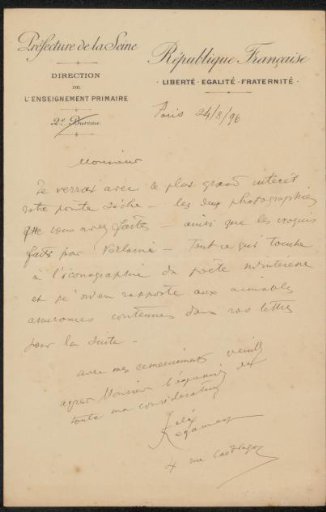 Préfecture de la Seine
DIRECTION
DE
L'ENSEIGNEMENT PRIMAIRE
2e Bureau
République Française
LIBERTÉ - EGALITÉ - FRATERNITÉ
Paris 24/8/96
Monsieur
Je verrai avec le plus grand intérêt
votre pointe sèche - les deux photographies
que vous avez faites - ainsi que les croquis
faits par Verlaine - Tout ce qui touche
à l'iconographie du poète m'intéresse
et je m'en rapporte aux aimables
assurances contenues dans vos lettres
pour la suite -
avec mes remerciements veuillez
agréer Monsieur l'expression de
toute ma considération
Félix
Régamey
4 rue